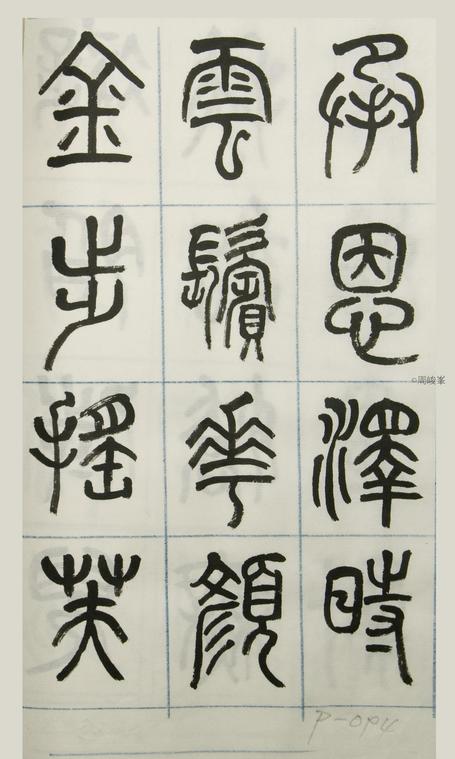 承恩澤時
雲鬢華顏
金步搖芙
P-094
©周峻峯